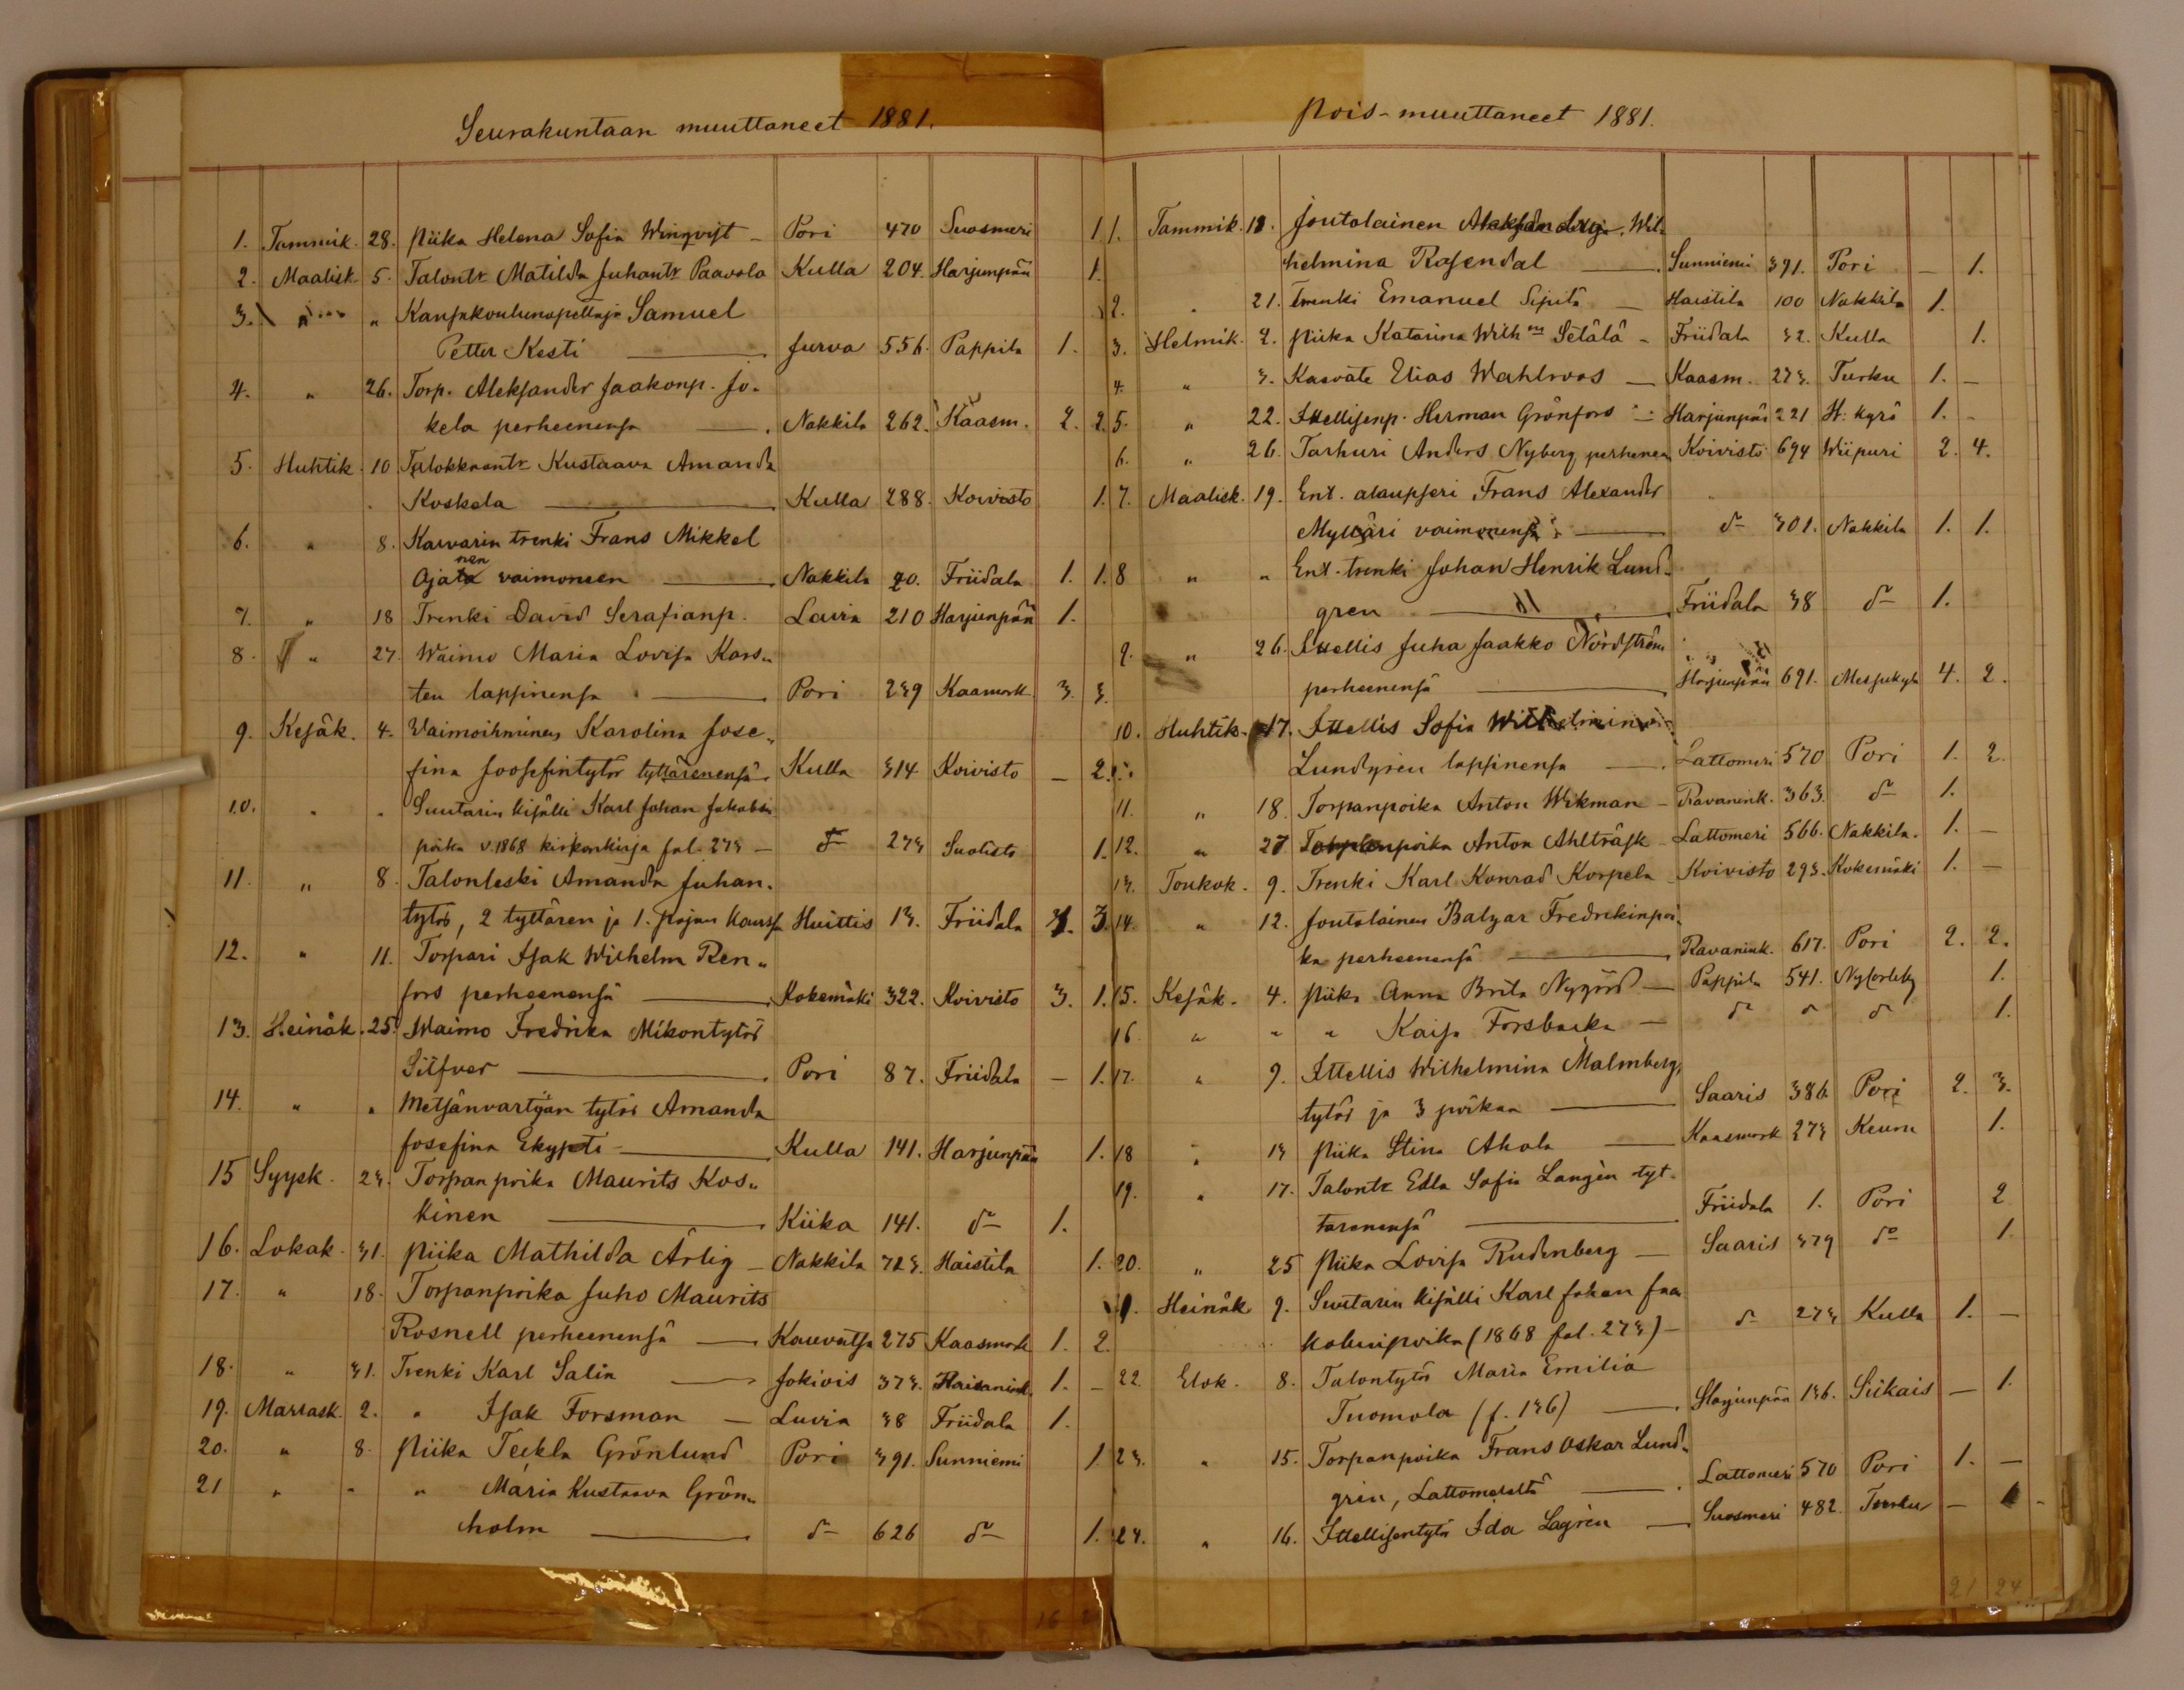 Seurakuntaan muuttaneet 1881.
1. Tammik. 28. Piika Helena Sofia Winqvist - Pori 470 Suosmeri 1.
2. Maalisk. 5. Talontr Matilda Juhantr Paavola Kulla 204. Harjunpää 1.
3. " " Kansakoulunopettaja Samuel
Petter Kesti - Jurva 556. Pappila 1.
4. " 26. Torp. Aleksander Jaakonp. Jo-
kela perheenensa - Nakkila 262. Kaasm. 2. 2.
5. Huhtik. 10 Talokkaantr Kustaava Amanda
Koskela - Kulla 288. Koivisto 1.
6. " 8. Karvarin trenki Frans Mikkel
Ajanen vaimoneen - Nakkila 20. Friidala 1. 1.
7. " 18 Trenki David Serafianp. Lavia 210 Harjunpää 1.
8. " 27. Waimo Maria Lovisa Kars-
ten lapsinensa - Pori 239 Kaasmark 3. 3.
9. Kesäk. 4. Vaimoihminen Karolina Jose-
fina Joosefintytör tyttärenensä. Kulla 314 Koivisto - 2.
10. " " Suutarin kisälli Karl Johan Jakobin
poika v. 1868 kirkonkirja fol. 273 - do 273 Suolisto 1.
11. " 8. Talonleski Amanda Juhan-
tytös, 2 tyttären ja 1. pojan kanssa Huittis 13. Friidala 1. 3.
12. " 11. Torpari Isak Wilhelm Ren-
fors perheenensä - Kokemäki 322. Koivisto 3. 1.
13. Heinäk. 25. Waimo Fredrika Mikontytös
Silfver - Pori 87. Friidala - 1.
14. " " Metsänvartijan tytös Amanda
Josefina Ekypeti - Kulla 141. Harjunpää 1.
15 Syysk. 23. Torpanpoika Maurits Kos-
kinen - Kiika 141. do 1.
16. Lokak. 31. Piika Mathilda Ärlig - Nakkila 723. Haistila 1.
17. " 18. Torpanpoika Juho Maurits
Rosnell perheenensä - Kauvatsa 275 Kaasmark 1. 2.
18. " 31. Trenki Karl Salin - Jokiois 373. 1. -
19. Marrask. 2. " Isak Forsman - Luvia 38 Friidala 1.
20. " 8. Piika Teckla Grönlund Pori 391. Sunniemi 1
21 " " " Maria Kustaava Grön-
holm - do 626 do 1.
16
Pois-muuttaneet 1881.
1. Tammik. 18. Joutolainen Wil-
helmina Rosendal - Sunniemi 391. Pori - 1.
2. " 21. Trenki Emanuel Sipilä - Haistila 100 Nakkila 1.
3. Helmik. 2. Piika Katarina Wilhna Setälä - Friidala 32. Kulla 1.
4. " 3. Kasvate Elias Wahlroos - Kaasm. 273. Turku 1. -
5. " 22. Itellisenp. Herman Grönfors - Harjunpää 221 H: kyrö 1. -
6. " 26. Tarhuri Anders Nyberg perheneen Koivisto 694 Wiipuri 2. 4.
7. Maalisk. 19. Ent. alaupseri Frans Alexander
Mylläri vaimonensa - do 301. Nakkila 1. 1.
8 " " Ent. trenki Johan Henrik Lund-
gren - Friidala 38 do 1.
9. " 26. Itellis Juha Jaakko Nordström
perheenensä - Harjunpää 691. 4. 2.
10. Huhtik. 17. Itellis Sofia Wilhelmina
Lundgren lapsinensa - Lattomeri 570 Pori 1. 2.
11. " 18. Torpanpoika Anton Wikman - Ravanink. 363. do 1.
12. " 27 Torpanpoika Anton Ahlträsk - Lattomeri 566. Nakkila. 1. -
13. Toukok. 9. Trenki Karl Konrad Korpela - Koivisto 293. Kokemäki 1. -
14. " 12. Joutolainen Balzar Fredrikinpoi-
ka perheenensä - Ravanink. 617. Pori 2. 2.
15. Kesäk. 4. Piika Anna Brita Nygård - Pappila 541. Nykarleby 1.
16 " " " Kaisa Forsbacka - do do do 1.
17. " 9. Itellis Wilhelmina Malmberg,
tytös ja 3 poikaa - Saaris 386 Pori 2. 3.
18 " 13 Piika Stina Ahola - Kaasmark 273 Keuru 1.
19. " 17. Talontr Edla Sofia Langén tyt-
tärenensä - Friidala 1. Pori 2
20. " 25 Piika Lovisa Rudenberg - Saaris 379 do 1.
Heinäk. 9. Suutarin kisälli Karl Johan Jaa
kobinpoika (1868 fol. 273) - do 273 Kulla 1. -
22. Elok. 8. Talontytös Maria Emilia
Tuomola (f. 136) - Harjunpää 136. Siikais - 1.
23. " 15. Torpanpoika Frans Oskar Lund-
grén, Lattomerelta - Lattomeri 570 Pori 1. -
24. " 16. Itellisentytös Ida Lagrén - Suosmeri 482. Turku -
21 24